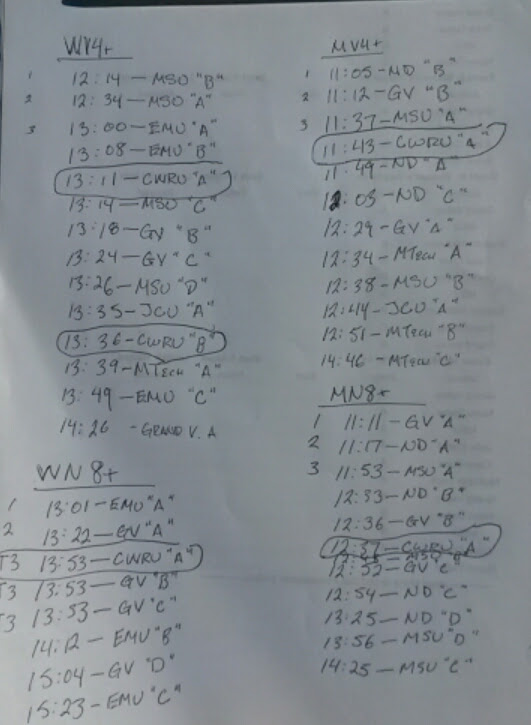 WV4+
1 12:14 - MSU "B"
2 12:34 - MSU "A"
3 13:00 - EMU "A"
13:08 - EMU "B"
13:11 - CWRU "A"
13:14 - MSU "C"
13:18 - GV "B"
13:24 - GV "C"
13:26 - MSU "D"
13:35 - JCU "A"
13:36 - CWRU "B"
13:39 - MTech "A"
13:49 - EMU "C"
14:26 - GRAND V. A
WN8+
1 13:01 - EMU "A"
2 13:22 - GV "A"
T3 13:53 - CWRU "A"
T3 13:53 - GV "B"
T3 13:53 - GV "C"
14:12 - EMU "B"
15:04 - GV "D"
15:23 - EMU "C"
MV4+
1 11:05 - ND "B"
2 11:12 - GV "B"
3 11:37 - MSU "A"
11:43 - CWRU "A"
11:49 - ND "A"
12:03 - ND "C"
12:29 - GV "A"
12:34 - MTech "A"
12:38 - MSU "B"
12:44 - JCU "A"
12:51 - MTech "B"
14:46 - MTech "C"
MN8+
1 11:11 - GV "A"
2 11:17 - ND "A"
3 11:53 - MSU "A"
12:33 - ND "B"
12:36 - GV "B"
12:37 - CWRU "A"
12:52 - GV "C"
12:54 - ND "C"
13:25 - ND "D"
13:56 - MSU "D"
14:25 - MSU "C"